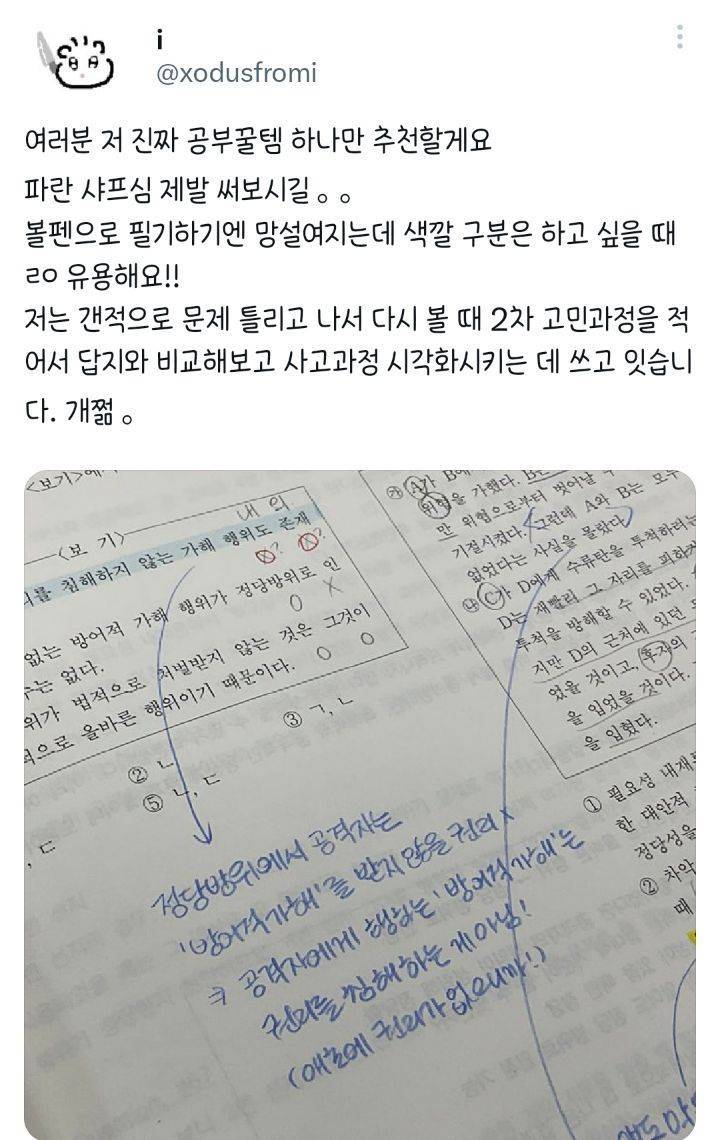 i
@xodusfromi
여러분 저 진짜 공부꿀템 하나만 추천할게요
파란 샤프심 제발 써보시길 。。
볼펜으로 필기하기엔 망설여지는데 색깔 구분은 하고 싶을 때
ㄹㅇ 유용해요!!
저는 갠적으로 문제 틀리고 나서 다시 볼 때 2차 고민과정을 적
어서 답지와 비교해보고 사고과정 시각화시키는 데 쓰고 잇습니
다. 개쩖 。
<보기>에
<보 기>
내의
를 침해하지 않는 가해 행위도 존재
없는 방어적 가해 행위가 정당방위로 인
수는 없다.
위가 법적으로 처벌받지 않는 것은 그것이
적으로 올바른 행위이기 때문이다.
② ㄴ
③ ㄱ, ㄴ
⑤ ㄴ, ㄷ
, ㄷ
정당방위에서 공격자는
'방어적가해'를 받지 않을 권리 x
공격자에게 행하는 '방어적가해'는
권리를 침해하는 게 아님!
(애초에 권리가 없으니까!)
㉮ A가 B에
위협을 가했다. B는
만 위협으로부터 벗어날 수
기절시켰다. 그런데 A와 B는 모두
없었다는 사실을 몰랐다.
㉯ C가 D에게 수류탄을 투척하려는
D는 재빨리 그 자리를 피하
투척을 방해할 수 있었다.
지만 D의 근처에 있던
었을 것이고, 후자의
을 입었을 것이다.
을 입혔다.
① 필요성 내재
한 대안적
정당성을
② 차악
때